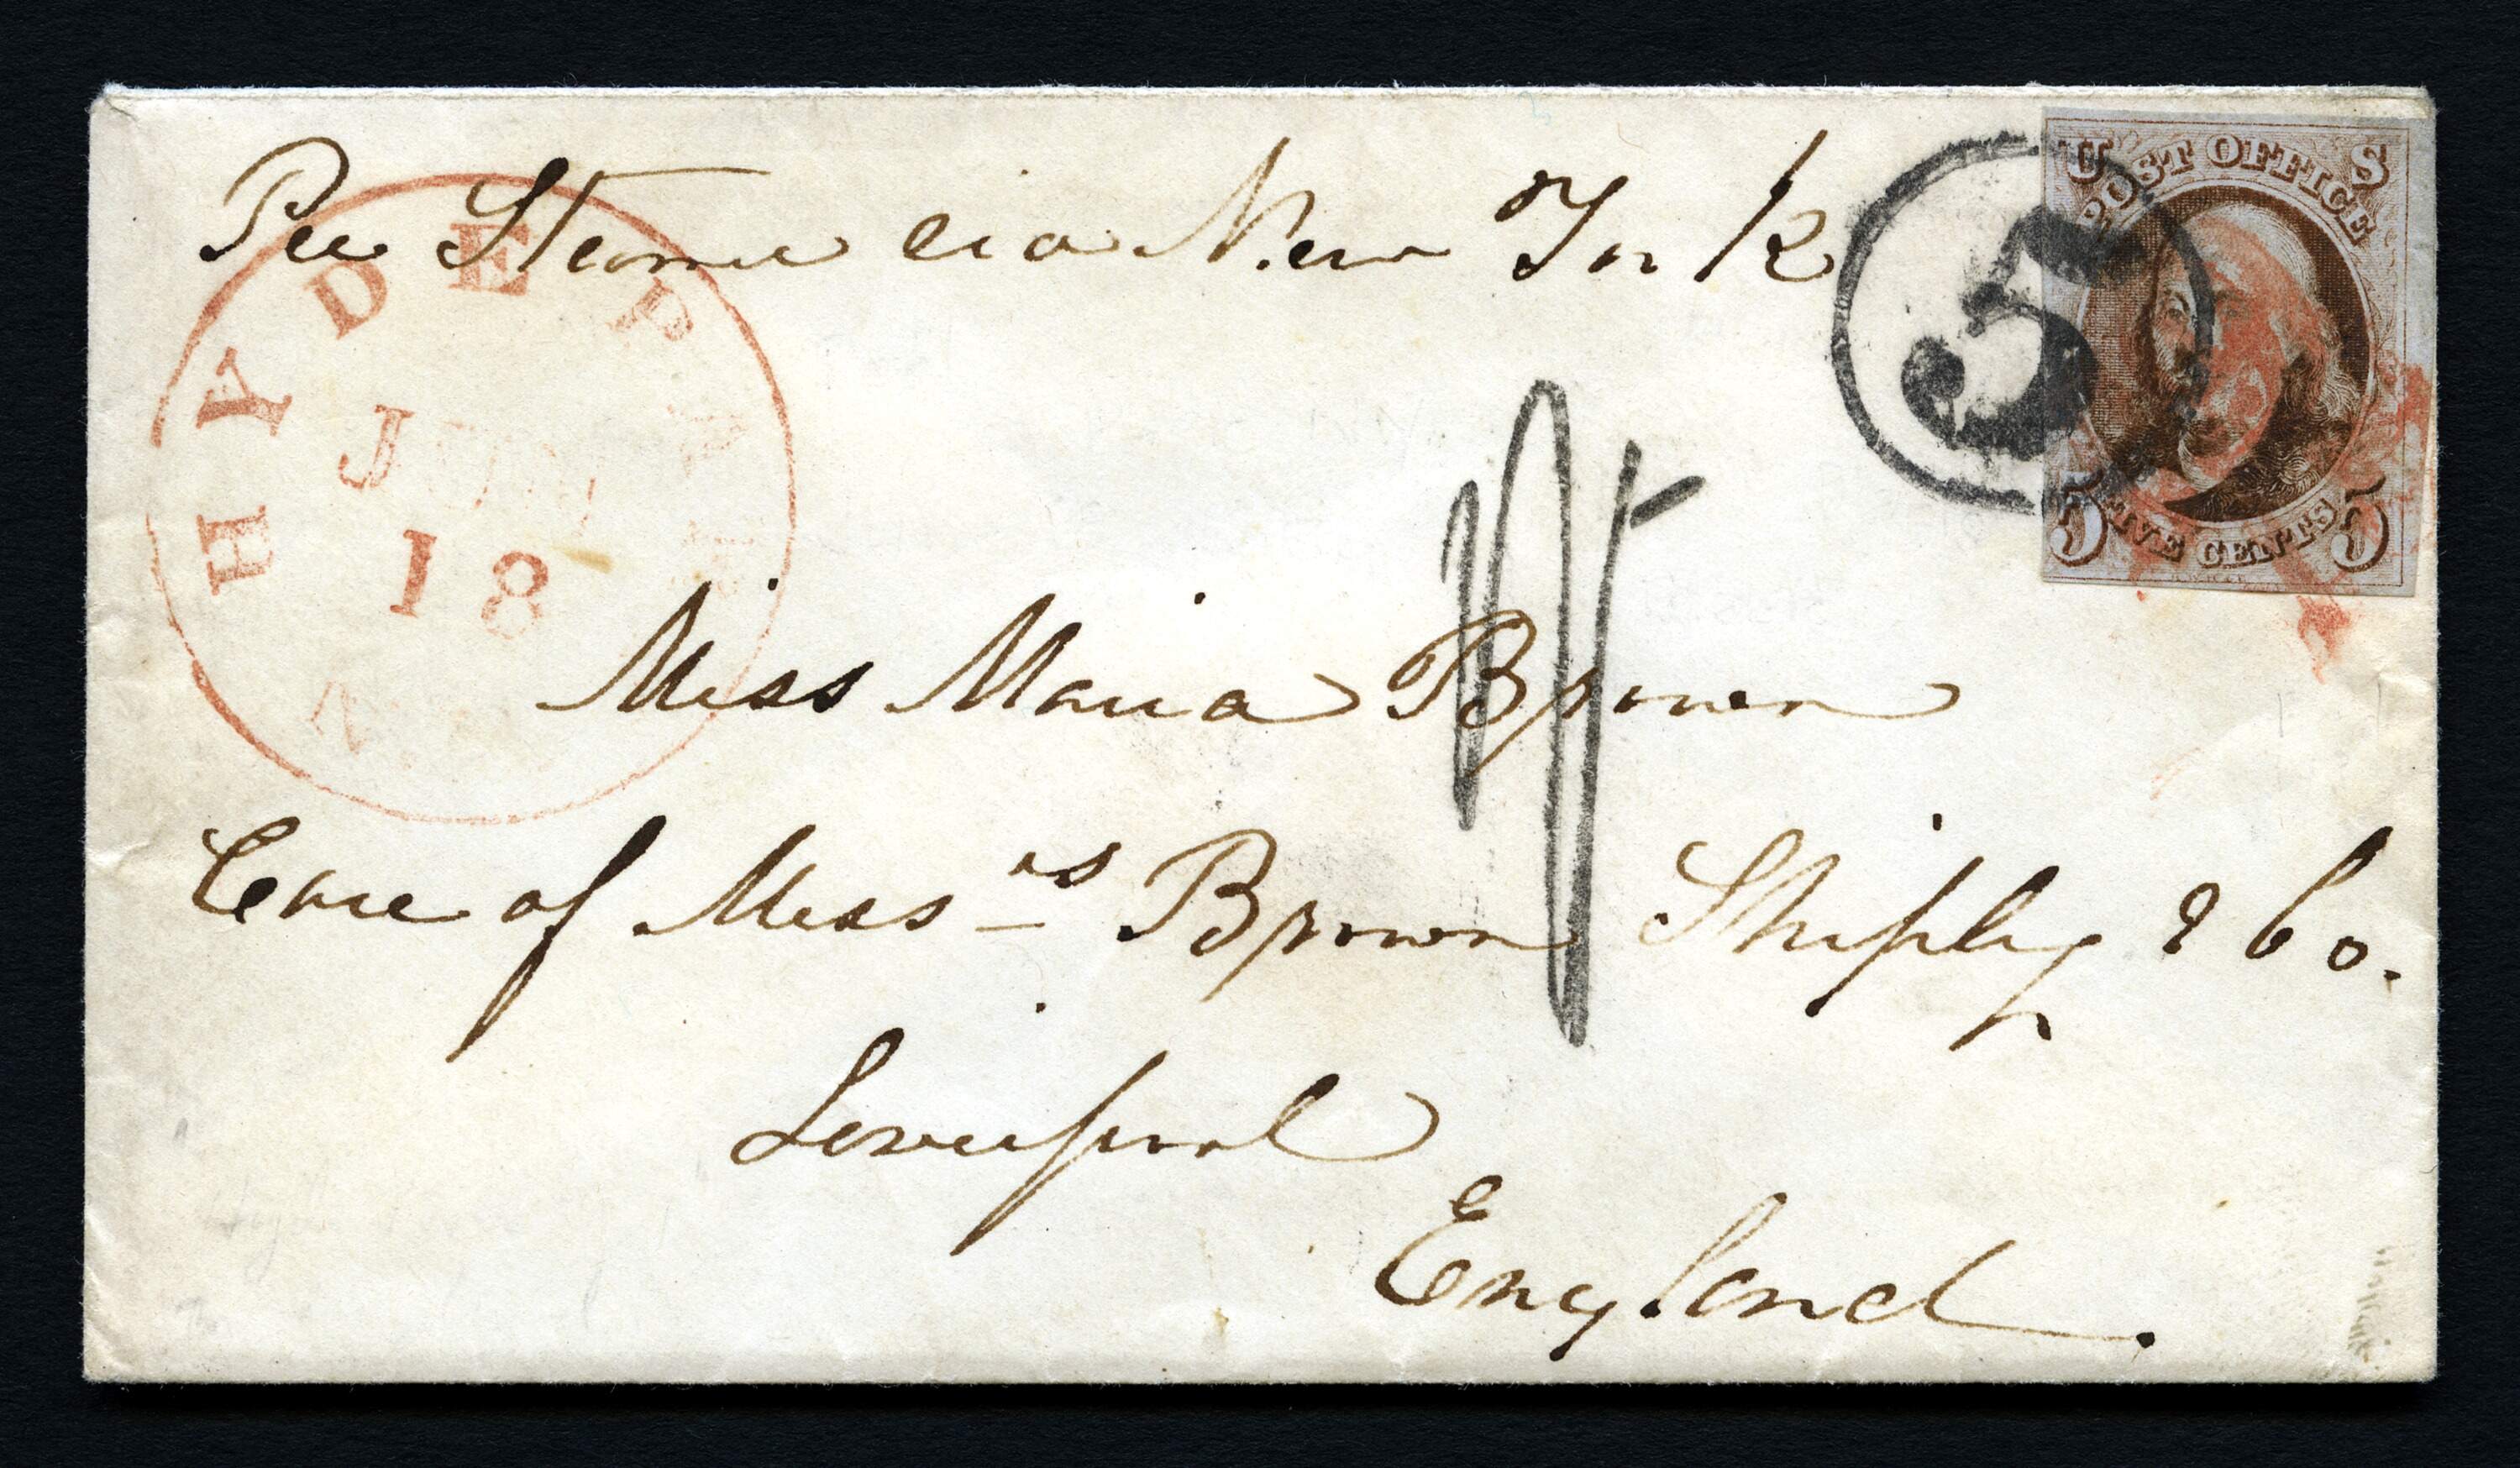 Per Steamer via New York
U S
POST OFFICE
5
5 FIVE CENTS 5
HYDE PA
JUN
18
N
Miss Maria Brown
Care of Mess rs Brown Shipley & Co.
Liverpool
England.